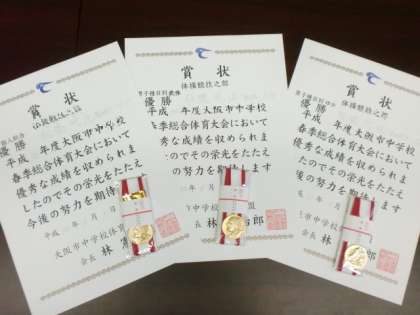 賞状
優勝
平成 年度大阪市中学校
春季総合体育大会において
優秀な成績を収められま
したのでその栄光をたたえ
今後の努力を期待
平成 年 月 日
大阪市中学校体育
会長 林
賞状
体操競技之部
男子種目別
優勝
平成 年度大阪市中学校
春季総合体育大会において
優秀な成績を収められま
したのでその栄光をたたえ
の努力を期待します
年 月 日
中学校 盟
会長 林 郎
賞状
体操競技之部
男子種目別
優勝
平成 年度大阪市中学校
春季総合体育大会において
優秀な成績を収められま
したのでその栄光をたたえ
後の努力を
市中学校
会長 林